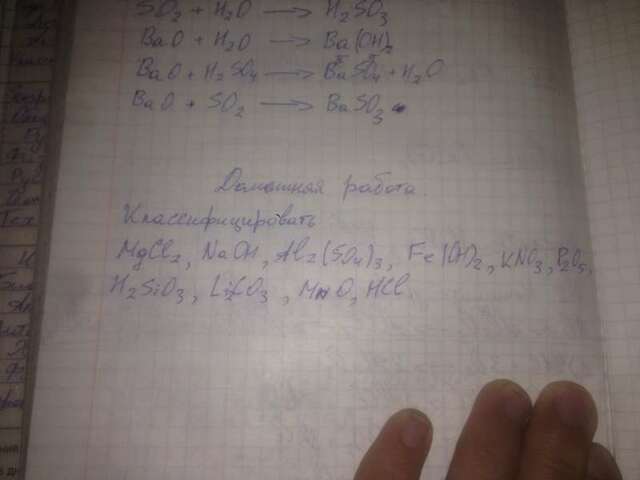 SO₂ + H₂O → H₂SO₃
BaO + H₂O → Ba(OH)₂
BaO + H₂SO₄ → BaSO₄ + H₂O
BaO + SO₂ → BaSO₃
Домашняя работа.
Классифицировать
MgCl₂, NaOH, Al₂(SO₄)₃, Fe(OH)₂, KNO₃, P₂O₅,
H₂SiO₃, Li₂CO₃, MnO, HCl.